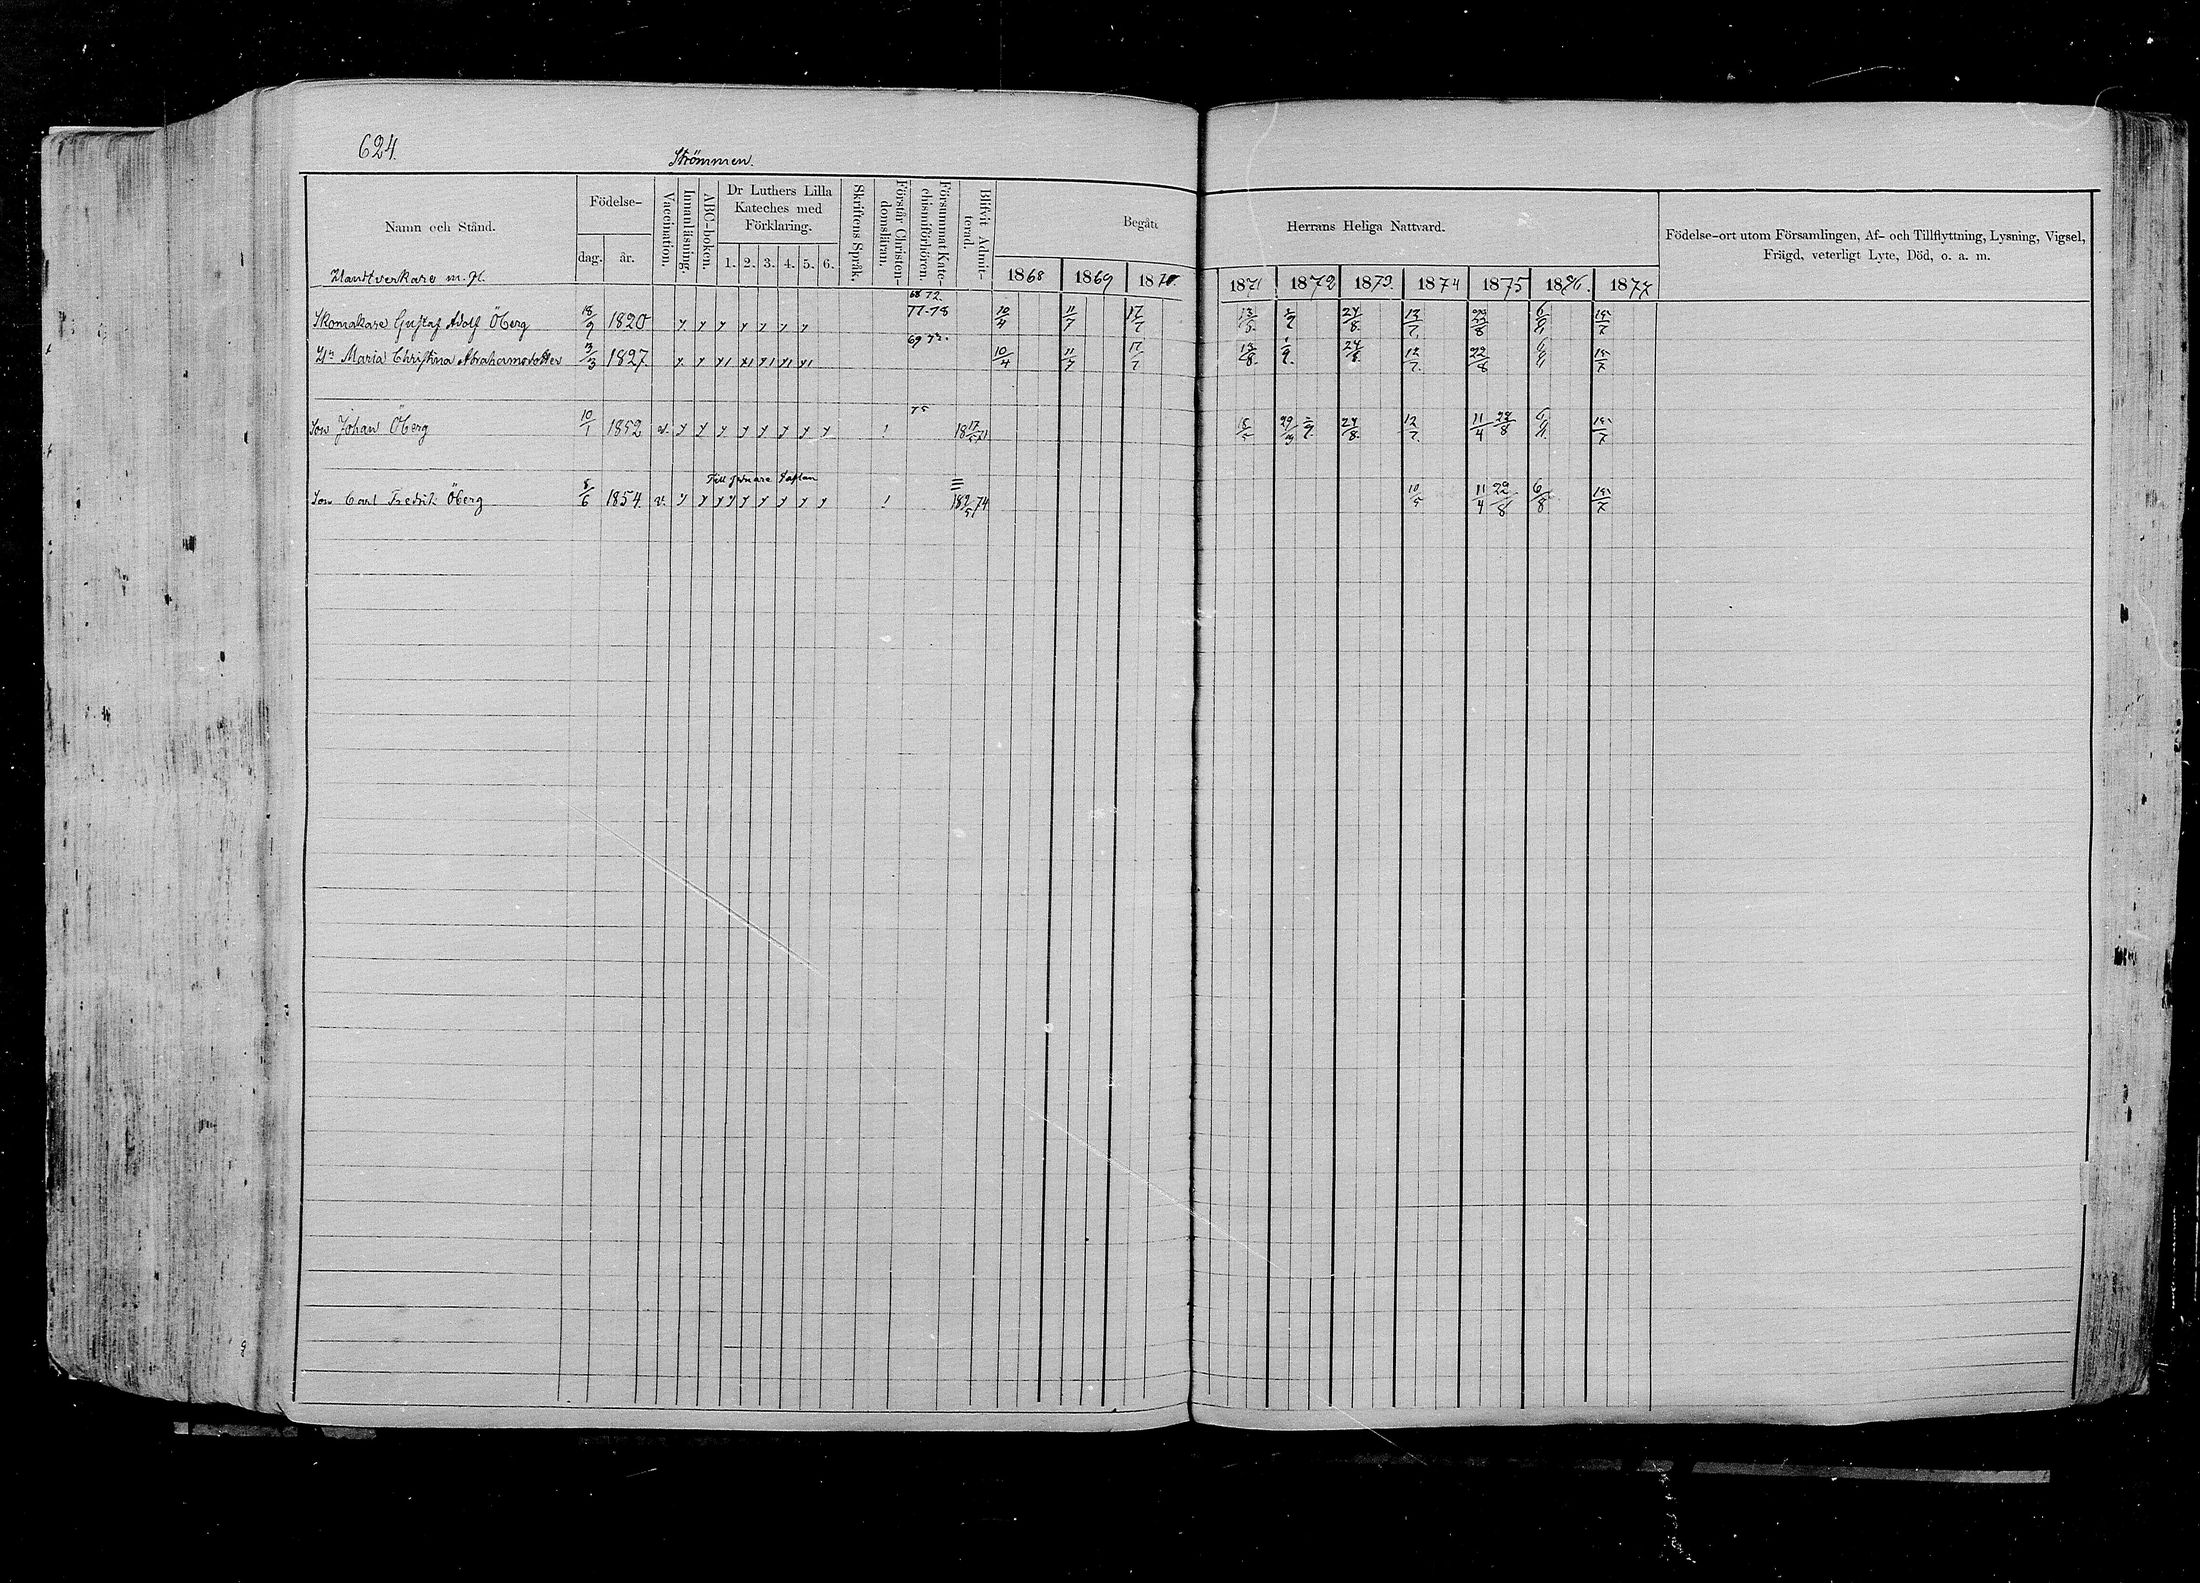 624.
Strömmen.
Namn och Stånd.
Födelse-
dag. år.
Vaccination.
Innanläsning.
ABC-boken.
Dr Luthers Lilla
Kateches med
Förklaring.
1. 2. 3. 4. 5. 6.
Skriftens Språk.
Förstår Christen-
domslärän.
Försummat Kate-
chismiförhören.
Blifvit Admit-
terad.
Begått Herrans Heliga Nattvard.
1868 1869 1870 1871 1872 1873 1874 1875 1876 1877
Födelse-ort utom Församlingen, Af- och Tillflyttning, Lysning, Vigsel,
Frägd, veterligt Lyte, Död, o. a. m.
Handtverkare m. fl.
68 72.
77-78
Skomakare Gustaf Adolf Öberg 18/9 1820 y y y y y y y 10/4 11/7 17/7 24/8 13/7 22/8 15/7
Hu Maria Christina Abrahamsdotter 3/3 1827. 10/4 11/7 17/7 13/8 24/8 12/7 22/8 15/7
75
Son Johan Öberg 10/1 1852 v. y y y y y y y y 18 17/5 71 24/8 12/7 11/4 22/8 15/7
Son Carl Fredrik Öberg 8/6 1854. v. y y y y y y y y 10/5 11/4 22/8 6/8 15/7